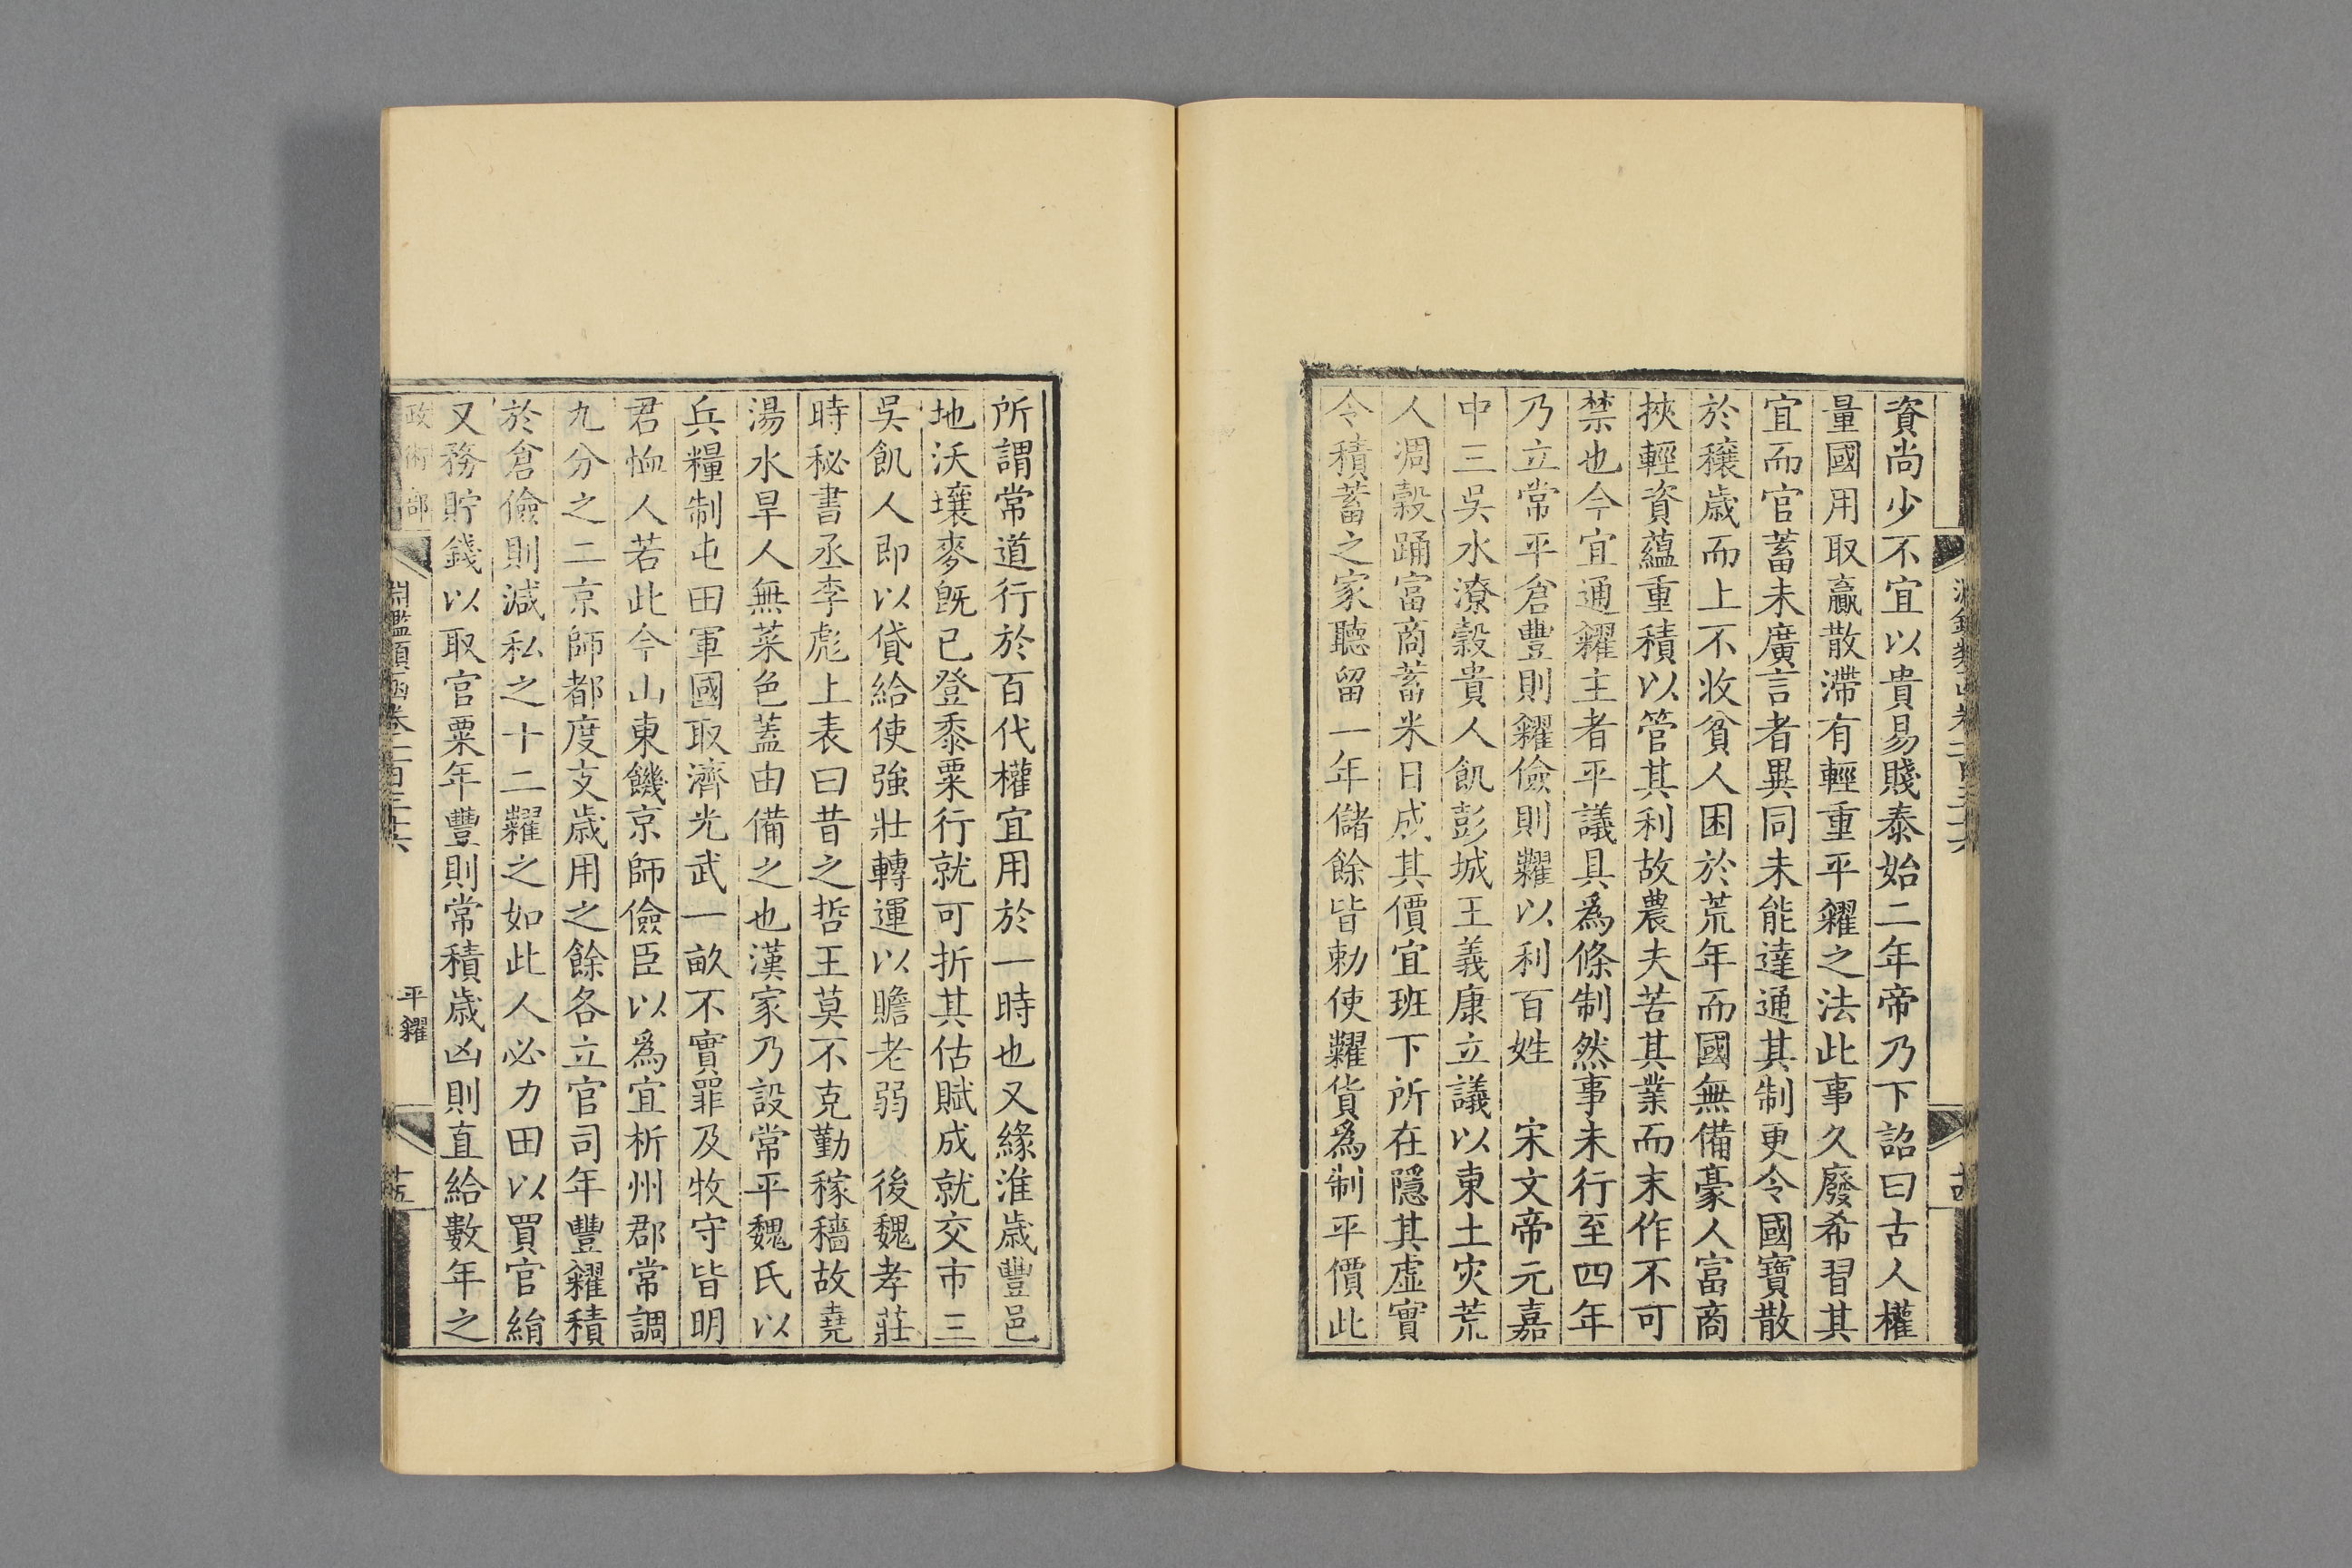 資尚少不宜以貴易賤泰始二年帝乃下詔曰古人權
量國用取贏散滯有輕重平糴之法此事久廢希習其
宜而官蓄未廣言者異同未能達通其制更令國寶散
於穰歲而上不收貧人困於荒年而國無備豪人富商
挾輕資蘊重積以管其利故農夫苦其業而末作不可
禁也今宜通糴主者平議具爲條制然事未行至四年
乃立常平倉豐則糴儉則糶以利百姓 宋文帝元嘉
中三吳水潦穀貴人飢彭城王義康立議以東土災荒
人凋穀踊富商蓄米日成其價宜班下所在隱其虛實
令積蓄之家聽留一年儲餘皆勅使糶貨爲制平價此
所謂常道行於百代權宜用於一時也又緣淮歲豐邑
地沃壤麥旣已登黍粟行就可折其估賦成就交市三
吳飢人即以貸給使強壯轉運以贍老弱 後魏孝莊
時秘書丞李彪上表曰昔之哲王莫不克勤稼穡故堯
湯水旱人無菜色蓋由備之也漢家乃設常平魏氏以
兵糧制屯田軍國取濟光武一畝不實罪及牧守皆明
君恤人若此今山東饑京師儉臣以爲宜析州郡常調
九分之二京師都度支歲用之餘各立官司年豐糴積
於倉儉則減私之十二糶之如此人必力田以買官絹
又務貯錢以取官粟年豐則常積歲凶則直給數年之
政術部
淵鑑類函卷一百三十六
平糴
十五